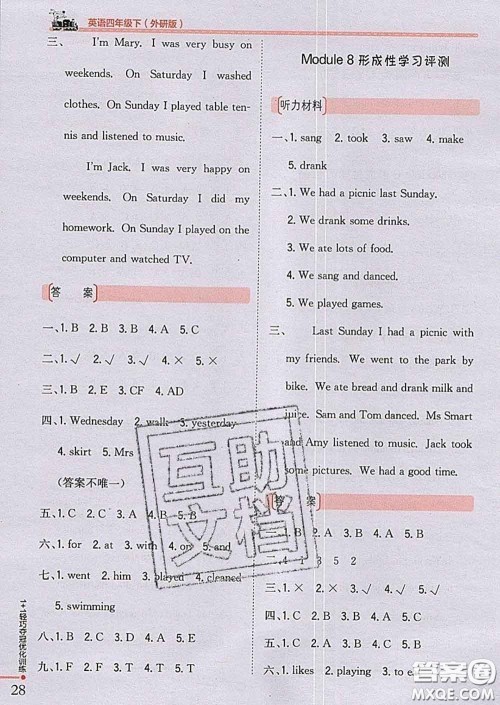 英语四年级下（外研版）
三、 I'm Mary. I was busy on
weekends. On Saturday I washed
clothes. On Sunday I played table ten-
nis and listened to music.
I'm Jack. I was very happy on
weekends. On Saturday I did my
homework. On Sunday I played on the
computer and watched TV.
答 案
一、1. B 2. B 3. B 4. A 5. C
二、1. √ 2. √ 3. √ 4. × 5. ×
三、1. B 2. E 3. CF 4. AD
四、1. Wednesday 2. walk 3. yesterday
4. skirt 5. Mrs
(答案不唯一)
五、1. C 2. B 3. A 4. A 5. B
六、1. for 2. at 3. with 4. on 5. and
七、1. went 2. him 3. played 4. cleaned
5. swimming
八、1. B 2. D 3. E 4. A 5. C
九、1. F 2. T 3. F 4. T 5. F
1+1轻巧夺冠优化训练
28
Module 8 形成性学习评测
听力材料
一、1. sang 2. took 3. saw 4. make
5. drank
二、1. We had a picnic last Sunday.
2. We drank some drinks.
3. We ate lots of food.
4. We sang and danced.
5. We played games.
三、 Last Sunday I had a picnic with
my friends. We went to the park by
bike. We ate bread and drank milk and
juice. Sam and Tom danced. Ms Smart
and Amy listened to music. Jack took
some pictures. We had a good time.
答 案
2. B 3. A 4. A 5. B
5 2
2. × 3. √ 4. √
1. likes 2. playing 3. to
互助
文档
答案圈
MXQE.COM